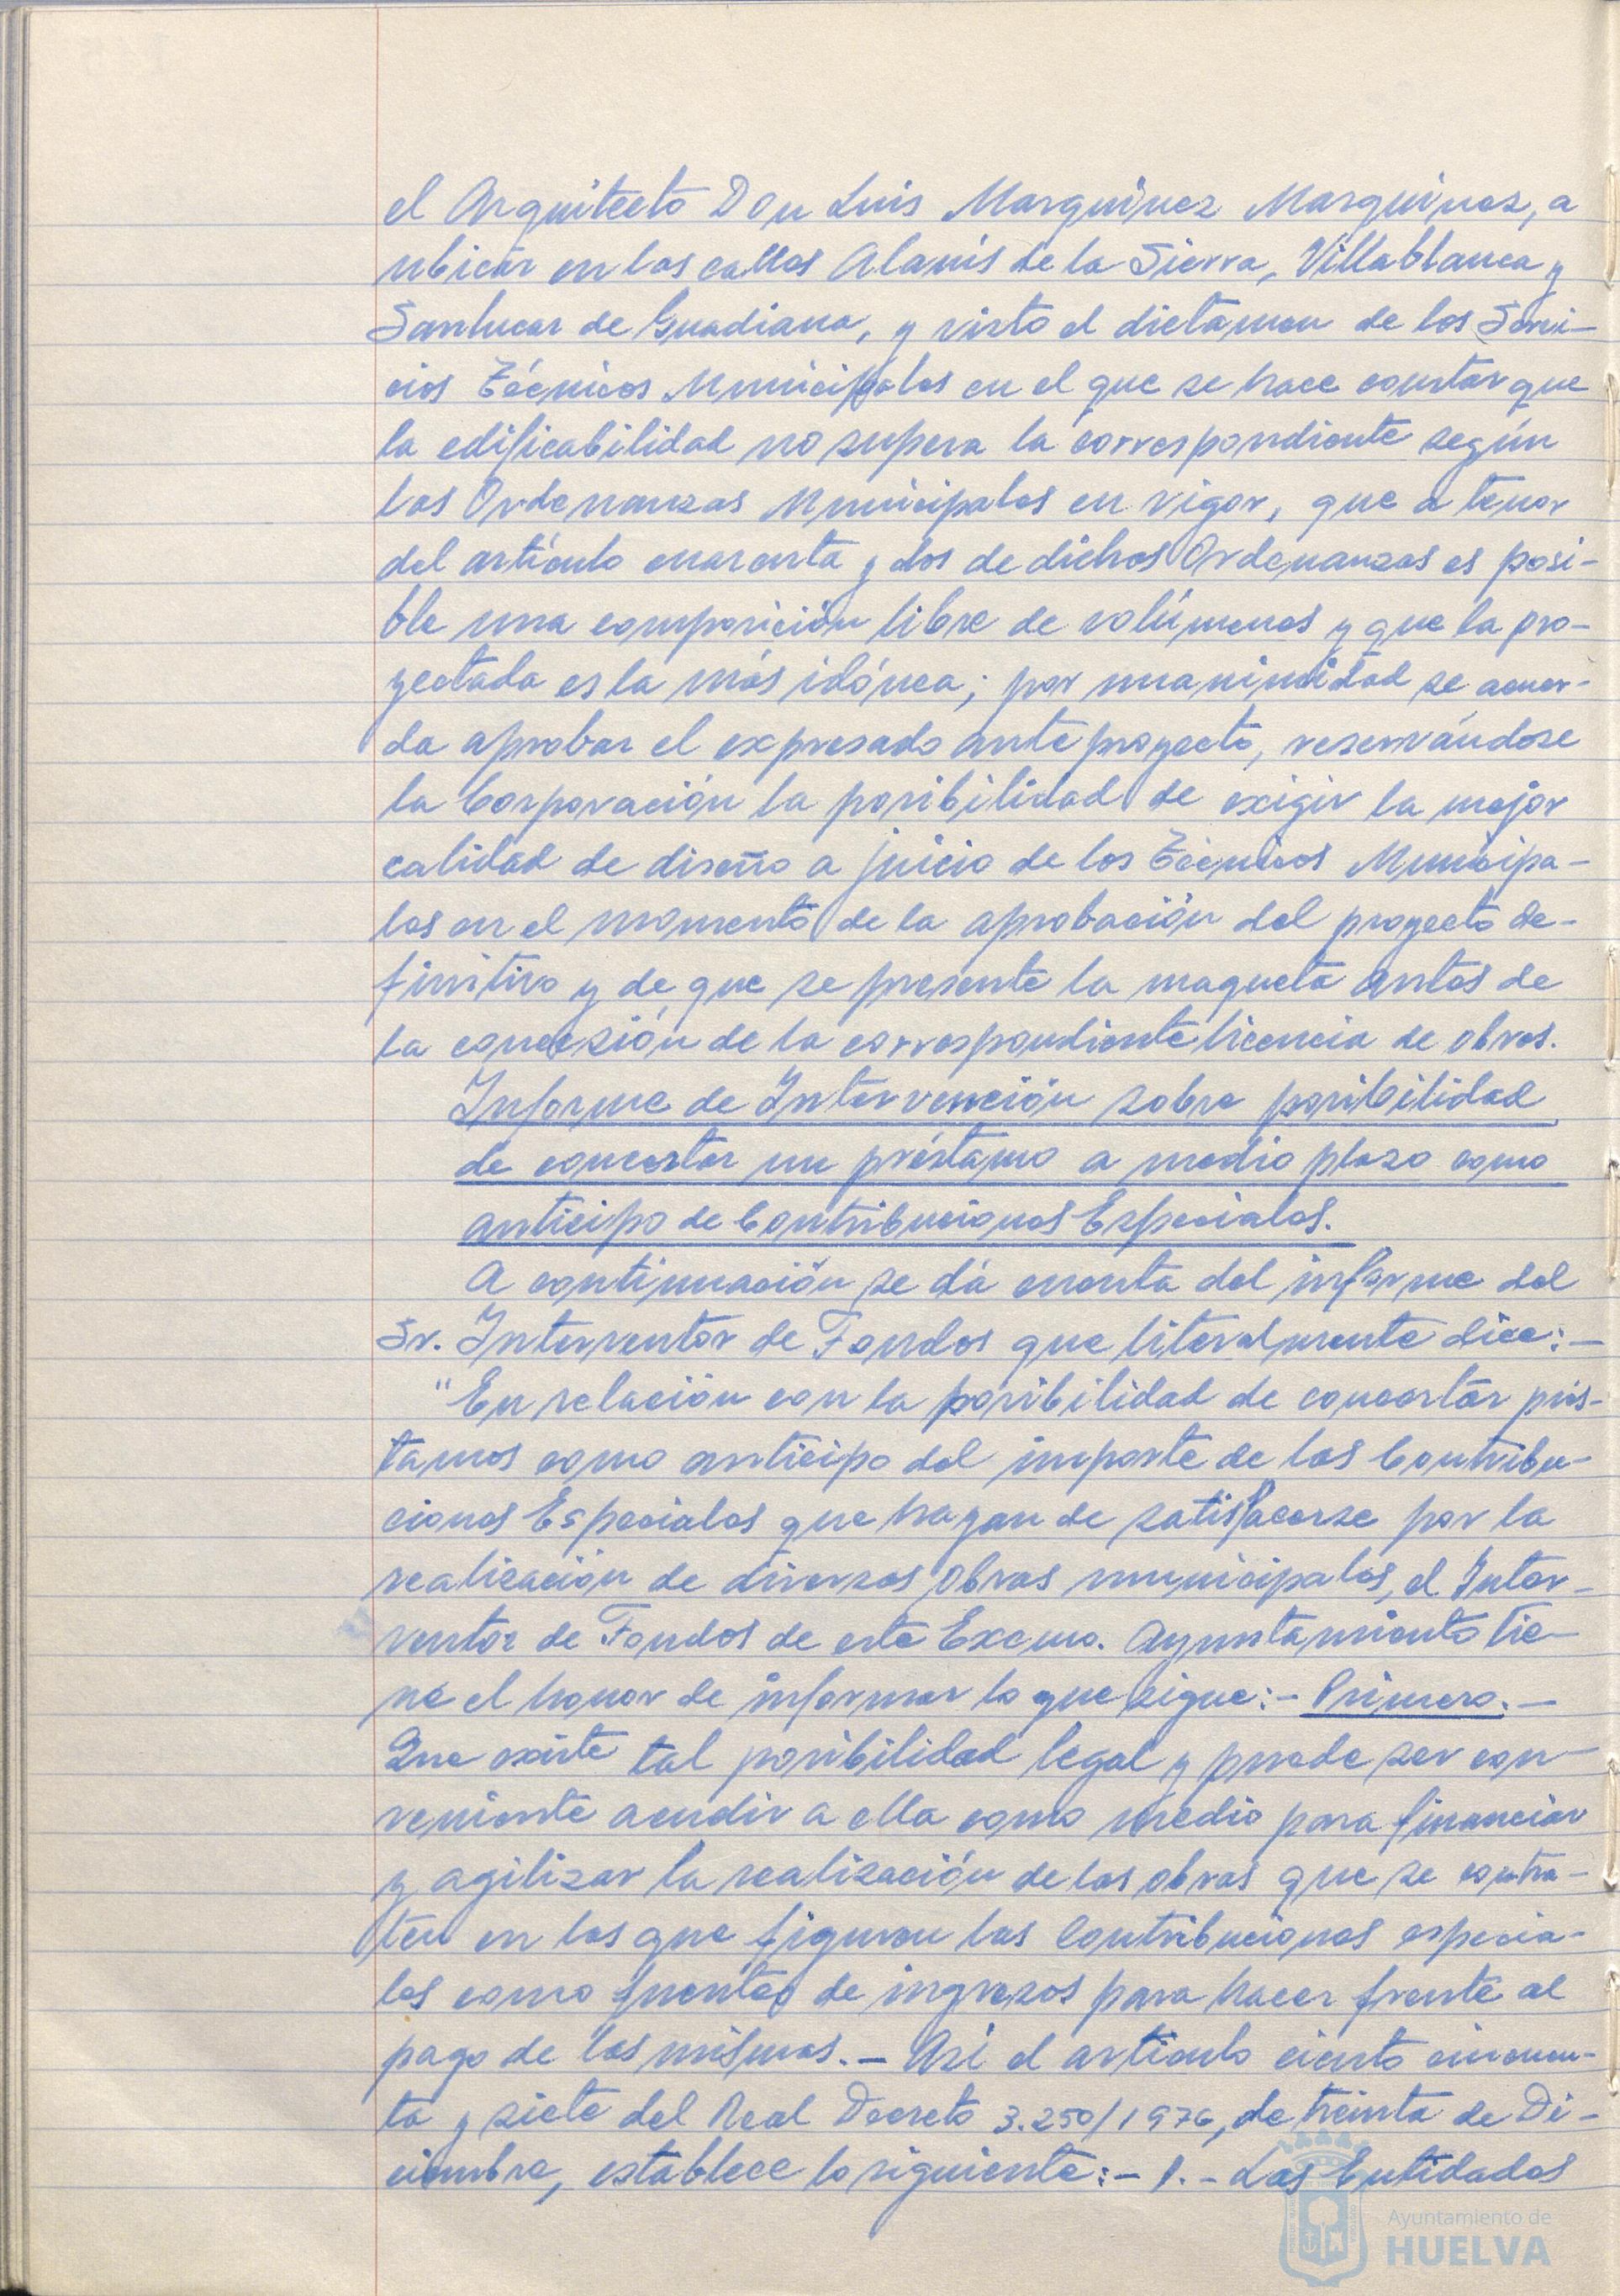 el Arquitecto Don Luis Marquínez Marquínez, a
ubicar en las calles Alanís de la Sierra, Villablanca y
Sanlucar de Guadiana, y visto el dictamen de los Servi-
cios Técnicos Municipales en el que se hace constar que
la edificabilidad no supera la correspondiente según
las Ordenanzas Municipales en vigor, que a tenor
del artículo cuarenta y dos de dichas Ordenanzas es posi-
ble una composición libre de volúmenes y que la pro-
yectada es la más idónea; por unanimidad se acuer-
da aprobar el expresado anteproyecto, reservándose
la Corporación la posibilidad de exigir la mejor
calidad de diseño a juicio de los Técnicos Municipa-
les en el momento de la aprobación del proyecto de-
finitivo y de que se presente la maqueta antes de
la concesión de la correspondiente licencia de obras.
Informe de Intervención sobre posibilidad
de concertar un préstamo a medio plazo como
anticipo de Contribuciones Especiales.
A continuación se dá cuenta del informe del
Sr. Interventor de Fondos que literalmente dice:-
"En relación con la posibilidad de concertar prés-
tamos como anticipo del importe de las Contribu-
ciones Especiales que hayan de satisfacerse por la
realización de diversas obras municipales, el Inter-
ventor de Fondos de este Excmo. Ayuntamiento tie-
ne el honor de informar lo que sigue:- Primero.-
Que existe tal posibilidad legal y puede ser con-
veniente acudir a ella como medio para financiar
y agilizar la realización de las obras que se contra-
ten en las que figuran las contribuciones especia-
les como fuentes de ingresos para hacer frente al
pago de las mismas.- Así el artículo ciento cincuen-
ta y siete del Real Decreto 3.250/1976, de treinta de Di-
ciembre, establece lo siguiente:- 1.- Las Entidades
Ayuntamiento de
HUELVA